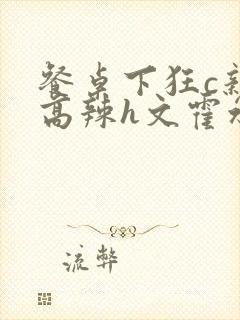 餐桌下狂c
高辣h文霍
流弊